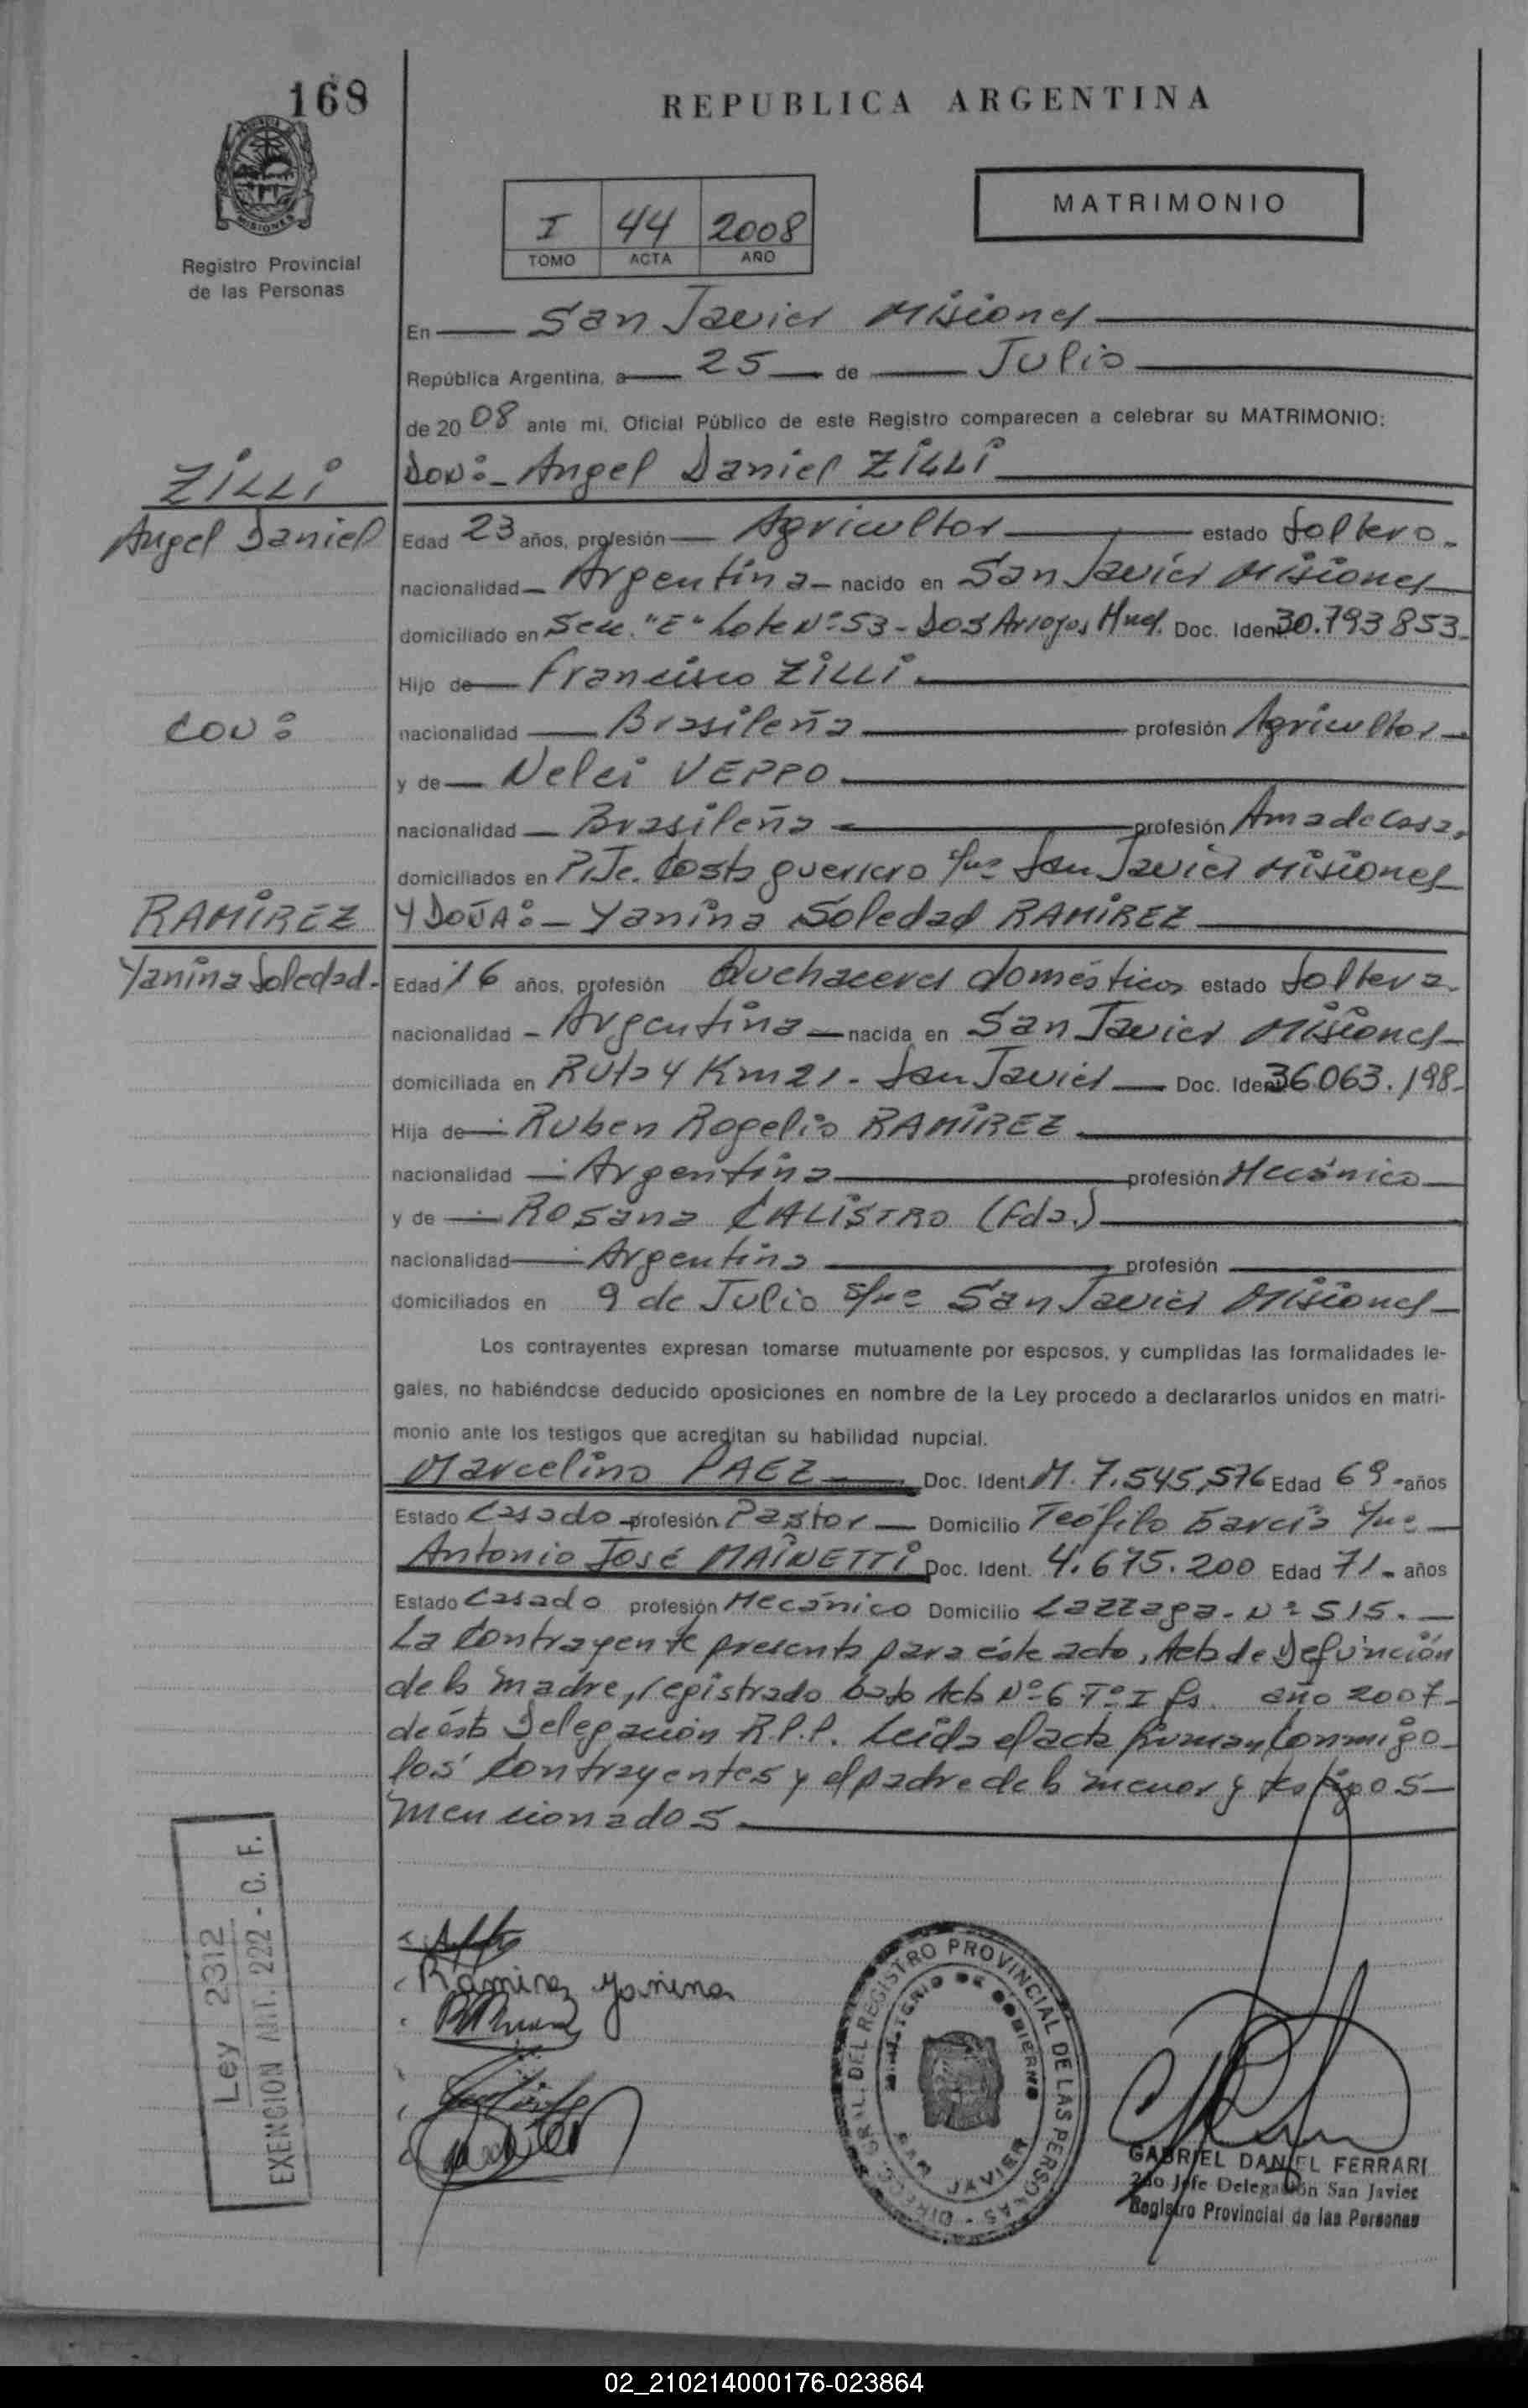 168
REPUBLICA ARGENTINA
MATRIMONIO
I 44 2008
TOMO ACTA AÑO
MISIONES
Registro Provincial
de las Personas
En San Javier Misiones
República Argentina, a 25 de Julio
de 2008 ante mi, Oficial Público de este Registro comparecen a celebrar su MATRIMONIO:
ZILLI
Angel Daniel
DON:- Angel Daniel ZILLI
Edad 23 años, profesión Agricultor estado Soltero.
nacionalidad Argentina nacido en San Javier Misiones
domiciliado en Secc. "E" Lote Nº 53 - Dos Arroyos Mnes. Doc. Ident 30.793853.
Hijo de Francisco ZILLI.
CON:
nacionalidad Brasileña profesión Agricultor
y de Nelci VEPPO
nacionalidad Brasileña profesión Ama de Casa.
domiciliados en Pje. Costa guerrero s/nº San Javier Misiones
RAMIREZ
Yanina Soledad.
Y DOÑA:- Yanina Soledad RAMIREZ
Edad 16 años, profesión Quehaceres domésticos estado Soltera.
nacionalidad - Argentina nacida en San Javier Misiones
domiciliada en Ruta 4 Km 21 - San Javier Doc. Ident 36063.198-
Hija de Ruben Rogelio RAMIREZ
nacionalidad Argentina profesión Mecánico
y de Rosana CALISTRO (Fda.)
nacionalidad Argentina profesión
domiciliados en 9 de Julio s/nº San Javier Misiones
Los contrayentes expresan tomarse mutuamente por esposos, y cumplidas las formalidades le-
gales, no habiéndose deducido oposiciones en nombre de la Ley procedo a declararlos unidos en matri-
monio ante los testigos que acreditan su habilidad nupcial.
Marcelino PAEZ Doc. Ident. M. 7.545,576 Edad 69 años
Estado Casado profesión Pastor Domicilio Teófilo García s/nº
Antonio José MAINETTI Doc. Ident. 4.675.200 Edad 71 años
Estado Casado profesión Mecánico Domicilio Nº 515.
La Contrayente presenta para éste acto, Acta de Defunción
de la madre, registrado bajo Acta Nº 6 Tº I fs. año 2007-
de ésta Delegación R.P.P. Leída el acta firman Conmigo
los Contrayentes y el padre de la menor y testigos
mencionados.
Ley 2312
EXENCION ART. 222 - C. F.
Ramirez Yanina
DIRECC. GRAL. DEL REGISTRO PROVINCIAL DE LAS PERSONAS - MISIONES
MINISTERIO DE GOBIERNO
SAN JAVIER
GABRIEL DANIEL FERRARI
2do Jefe Delegación San Javier
Registro Provincial de las Personas
02_210214000176-023864